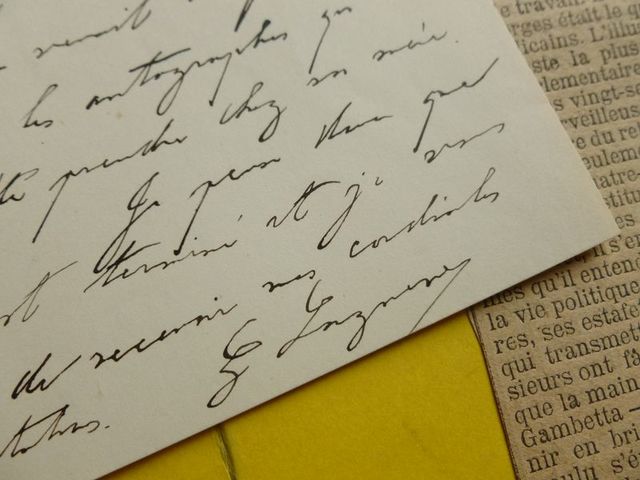 les autographes qui
prendre chez sa mère.
Je pense donc que
terminé et je vous
de recevoir mes cordiales
G
travail
rges était le q
ricains. L'illus
ste la plus
lementaire
s vingt-s
rveilleus
re du rel
eulemen
atre-
stitu
es
il s'e
mes qu'il entend
la vie politique
res, ses estafe
qui transmet
sieurs ont fâ
que la main
Gambetta —
nir en bri
oulu s'é